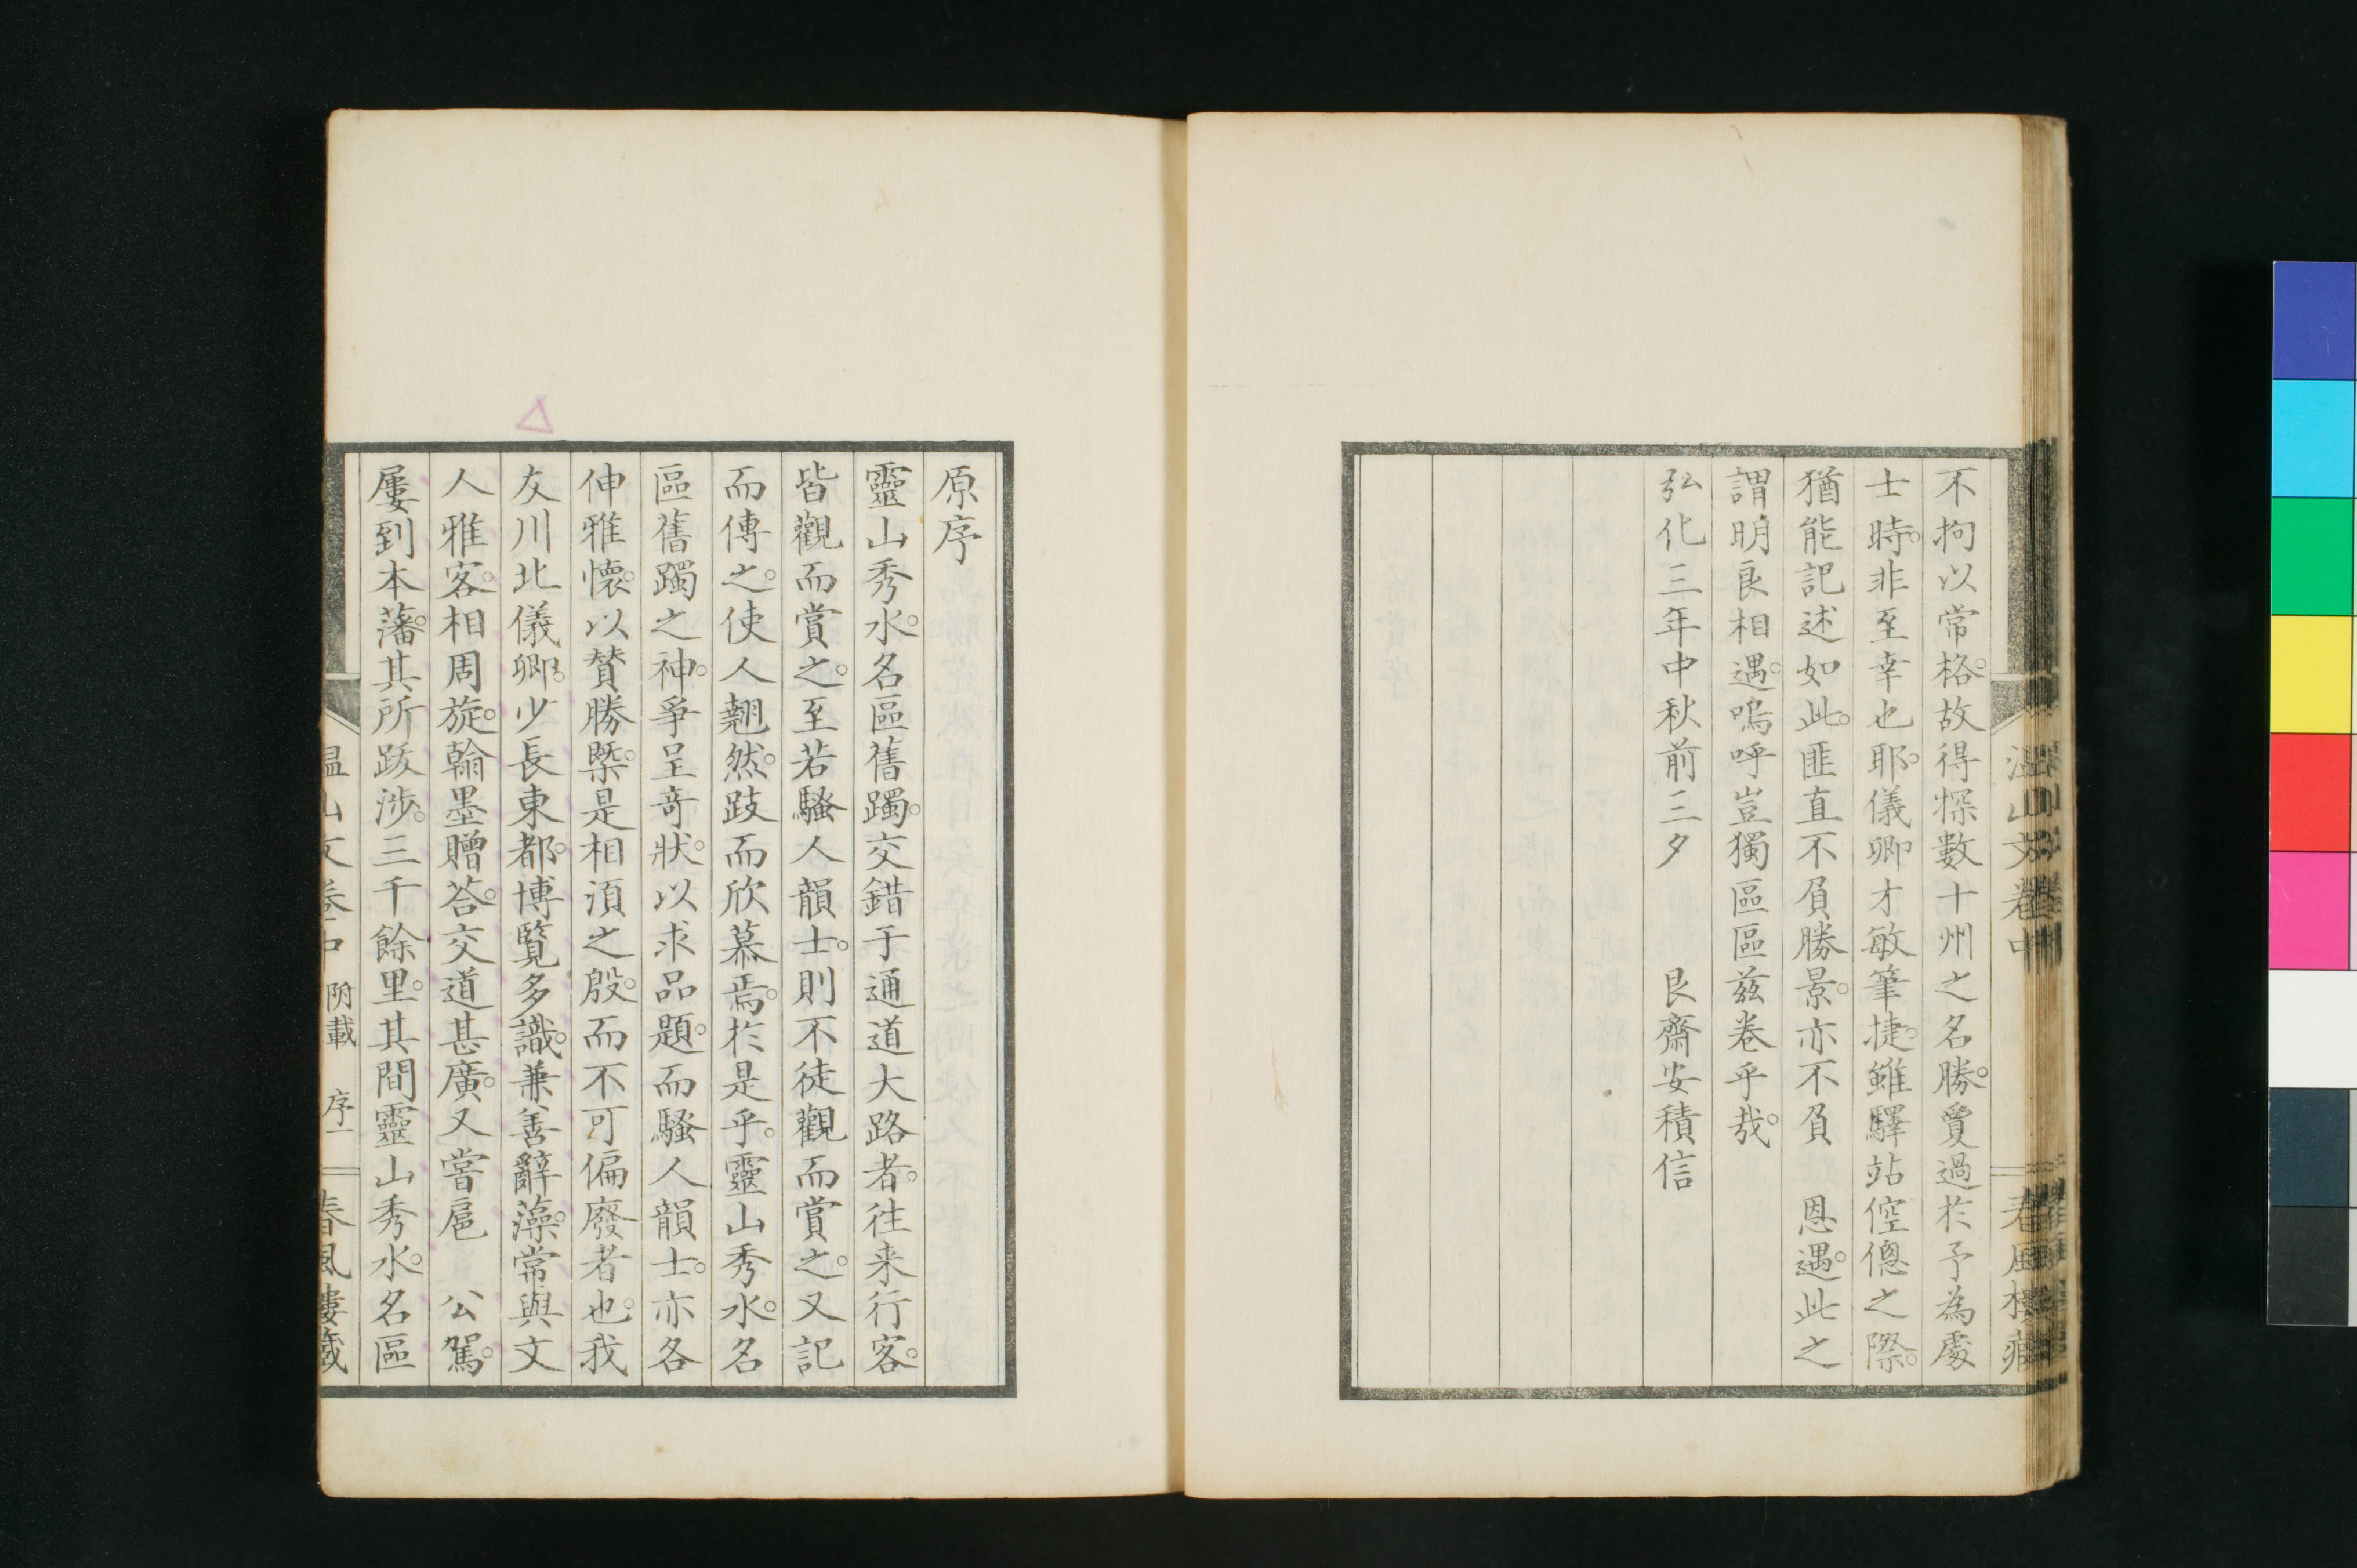 不拘以常格。故得探數十州之名勝。夐過於予為處
士時。非至幸也耶。儀卿才敏筆捷。雖驛站倥傯之際。
猶能記述如此。匪直不負勝景。亦不負　恩遇。此之
謂明良相遇。嗚呼豈獨區區茲卷乎哉。
弘化三年中秋前三夕　　艮齋安積信
溫山文卷中
原序
靈山秀水。名區舊躅。交錯于通道大路者。往来行客。
皆觀而賞之。至若騷人韻士。則不徒觀而賞之。又記
而傳之。使人翹然。跂而欣慕焉。於是乎。靈山秀水。名
區舊躅之神。爭呈奇狀。以求品題。而騷人韻士。亦各
伸雅懷。以賛勝槩。是相湏之殷。而不可偏廢者也。我
友川北儀卿。少長東都。博覧多識。兼善辭藻。常與文
人雅客。相周旋。翰墨贈荅。交道甚廣。又嘗扈　公駕。
屢到本藩。其所跋涉。三千餘里。其間靈山秀水。名區
温山文卷中　附載　序一　春風樓藏